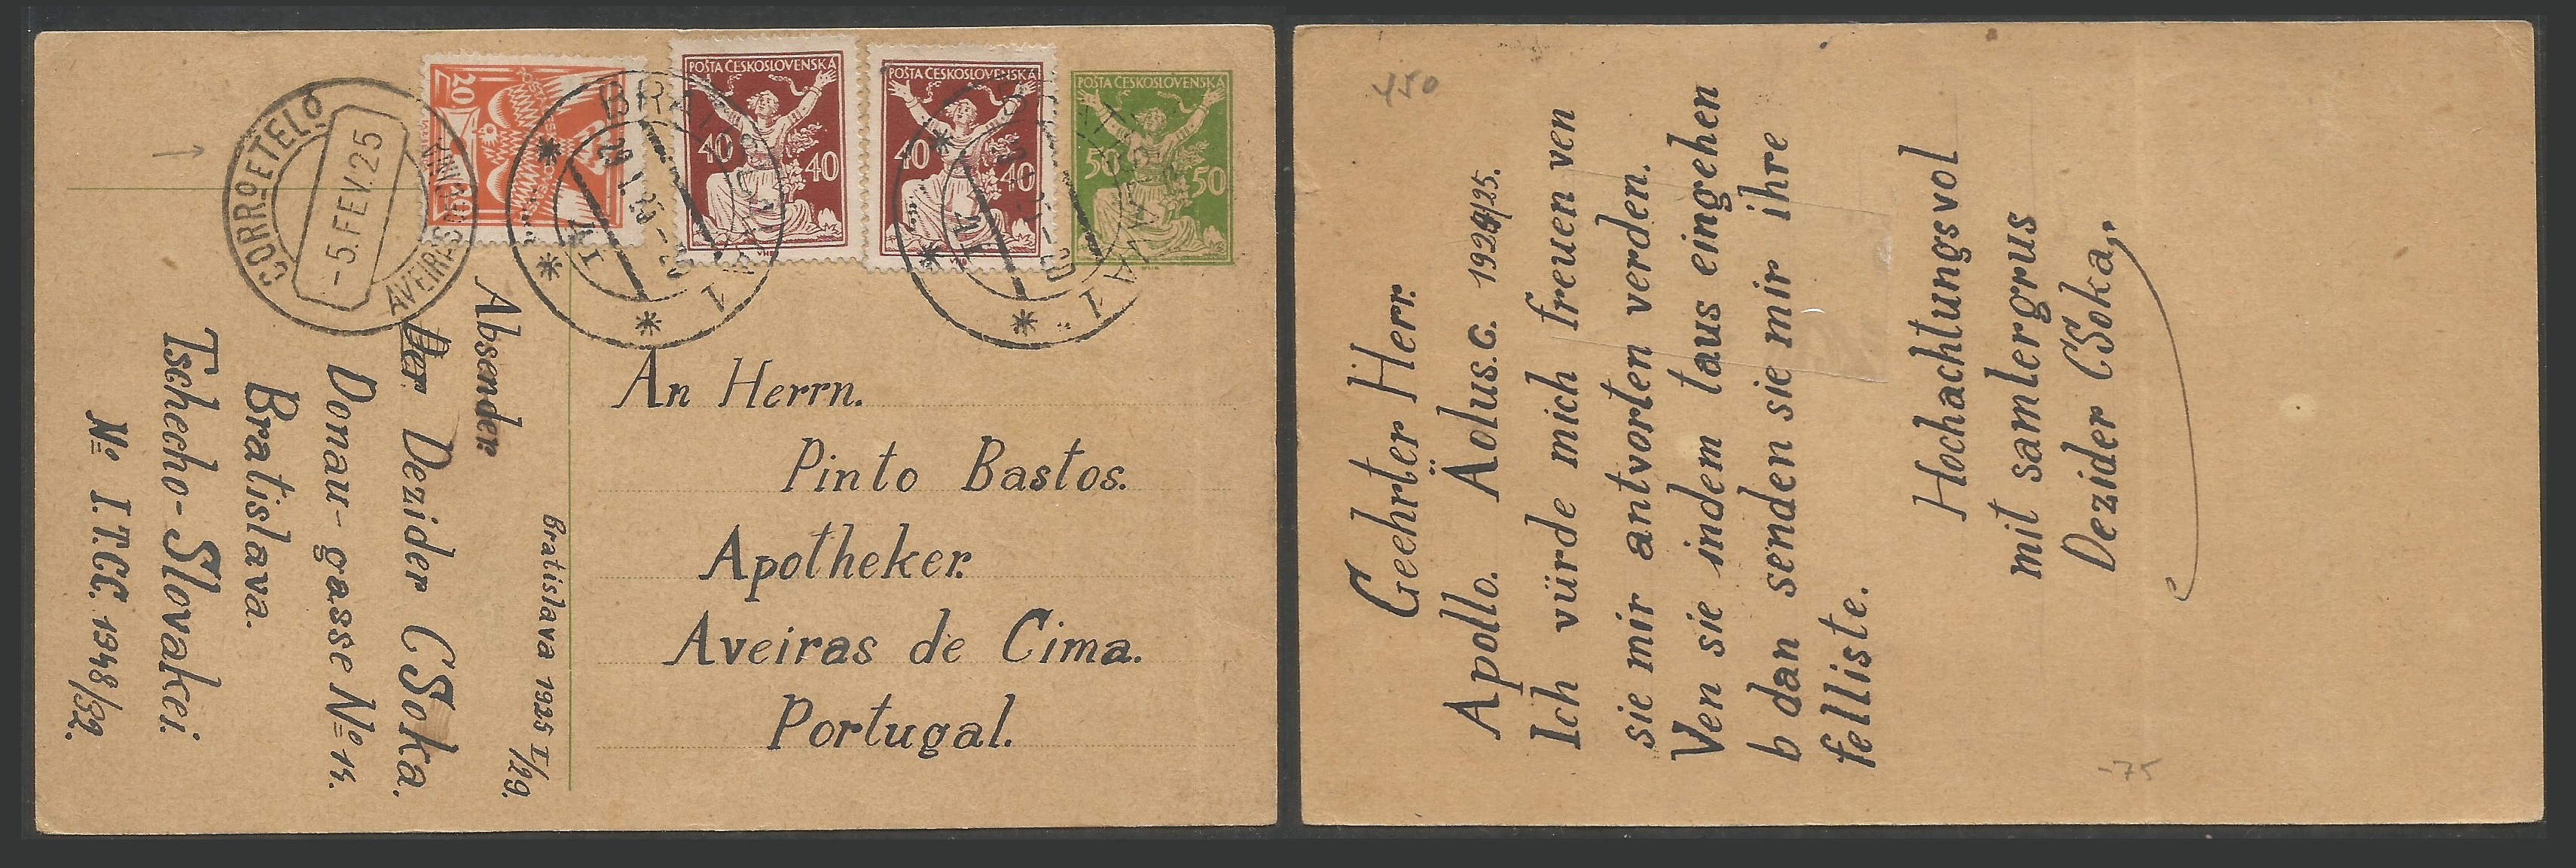 POŠTA ČESKOSLOVENSKÁ
40 40
POŠTA ČESKOSLOVENSKÁ
40 40
POŠTA ČESKOSLOVENSKÁ
50 50
20
CORRO E TELO
-5.FEV.25
AVEIRAS DE CIMA
BRATISLAVA 1
BRATISLAVA 1
An Herrn.
Pinto Bastos.
Apotheker.
Aveiras de Cima.
Portugal.
Bratislava 1925 I/29.
Absender.
Dezider CSoka.
Donau-gasse No 14.
Bratislava.
Tschecho-Slovakei.
No I.T.C.C. 1948/32.
450
Geehrter Herr.
Apollo. Äolus.c. 1924/25.
Ich vürde mich freuen ven
sie mir antvorten verden.
Ven sie indem taus eingehen
b dan senden sie mir ihre
felliste.
Hochachtungsvol
mit samlergrus
Dezider CSoka.
-75